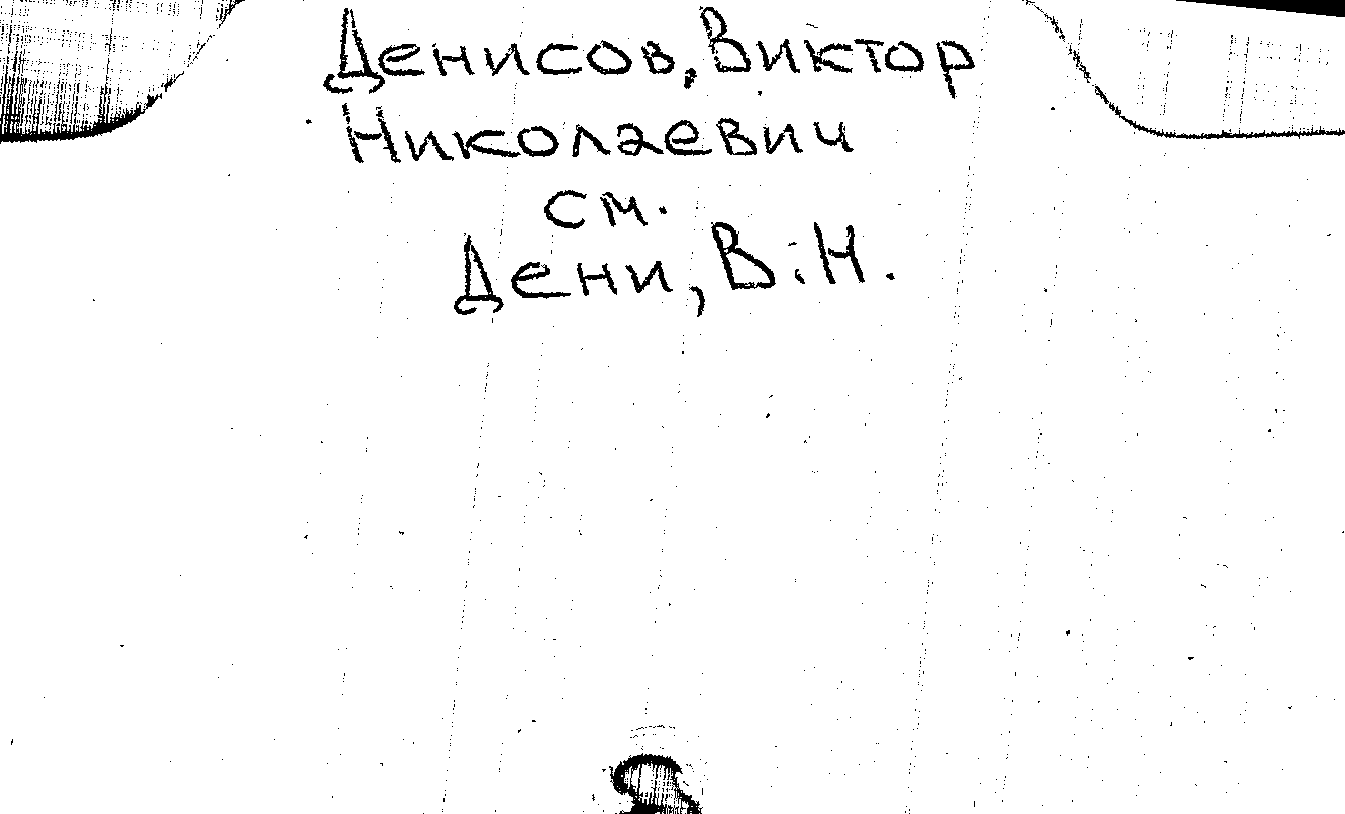 Денисов, Виктор
Николаевич
см.
Дени, В.Н.